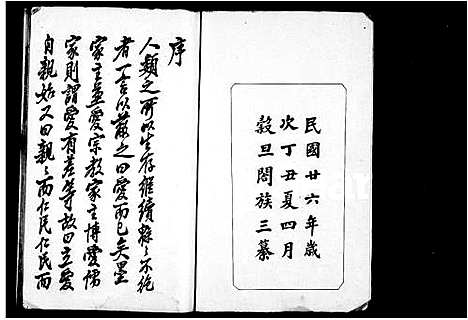 民國廿六年歲
次丁丑夏四月
穀旦閤族三纂
序
人類之所以生存繼續緜々不絶
者一言以蔽之曰愛而已矣墨
家主兼愛宗教家主博愛儒
家則謂愛有差等故曰立愛
自親始又曰親々而仁民仁民而